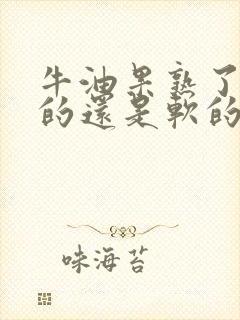 牛油果熟了
的還是軟的
味海苔